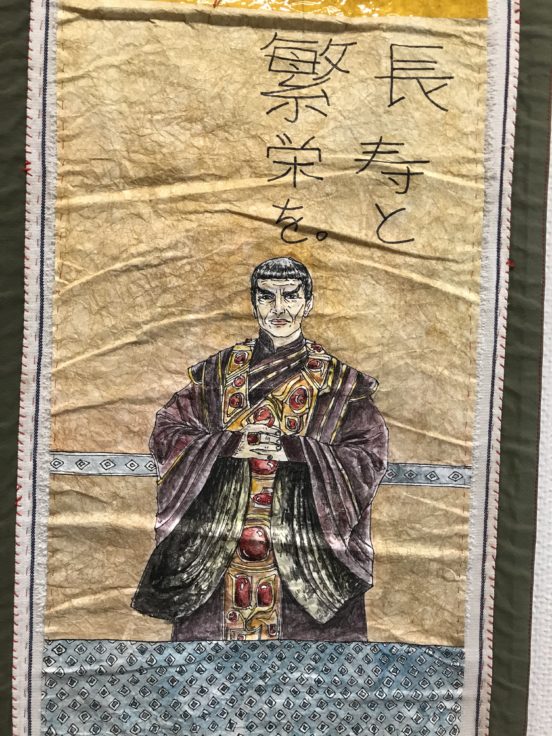 長寿と
繁栄を。